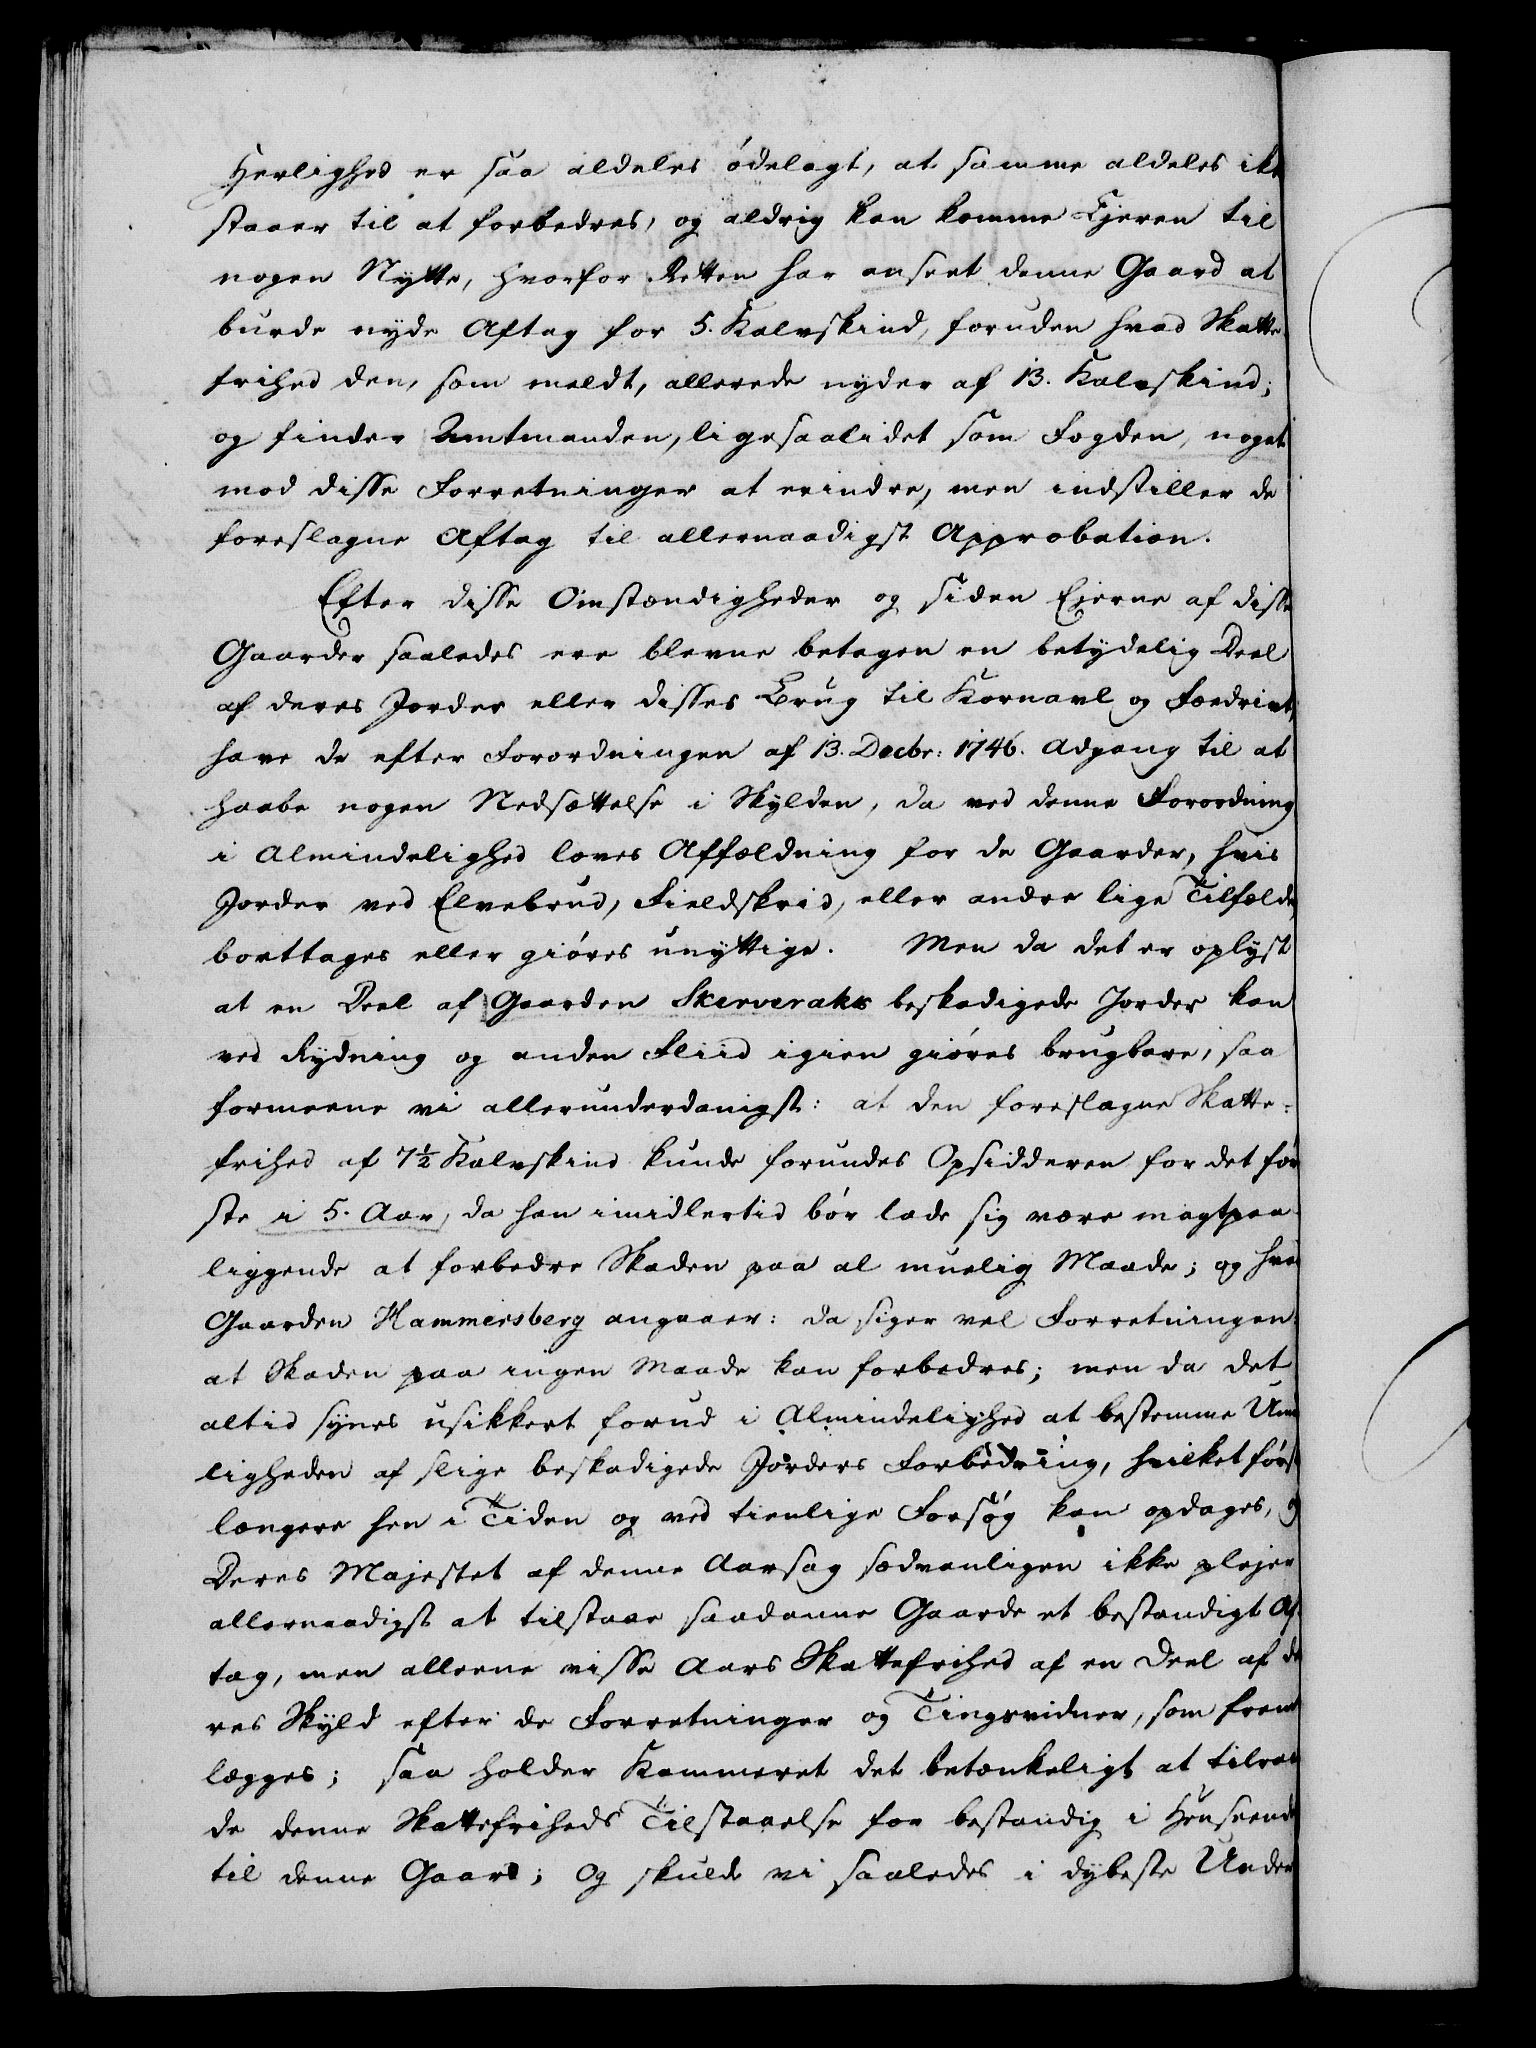 Herlighed er saa aldeles ödelagt, at samme aldeles ikke
staaer til at forbedres, og aldrig kan komme Ejeren til
nogen Nytte, hvorfor Retten har anseet denne Gaard at
burde nyde Aftag for 5. Kalvskind, foruden hvad Skatte
frihed den, som meldt, allerede nyder af 13. Kalvskind;
og finder Amtmanden, ligesaalidet som Fogden, noget
mod disse Forretninger at erindre, men indstiller de
foreslagne Aftag til allernaadigst Approbation.
Efter disse Omstændigheder og siden Ejerne af disse
Gaarder saaledes ere blevne betagen en betydelig Deel
af deres Jorder eller disses Brug til Kornavl og Foedrivt,
have de efter Forordningen af 13. Decbr: 1746. Adgang til at
haabe nogen Nedsættelse i Skylden, da ved denne Forordning
i Almindelighed loves Affældning for de Gaarder, hvis
Jorder ved Elvebrud, Fieldskrid, eller andre lige Tilfælde
borttages eller giöres unyttige. Men da det er oplyst
at en Deel af Gaarden Skerveraks beskadigede Jorder kan
ved Rydning og anden Fliid igien giöres brugbare, saa
formeene vi allerunderdanigst: at den foreslagne Skatte-
frihed af 7½ Kalvskind kunde forundes Opsidderen for det för
ste i 5. Aar, da han imidlertid bör lade sig være magtpaa
liggende at forbedre Skaden paa al muelig Maade; og hvad
Gaarden Hammersberg angaaer: da siger vel Forretningen
at Skaden paa ingen Maade kan forbedres; men da det
altid synes usikkert forud i Almindelighed at bestemme Umu
ligheden af slige beskadigede Jorders Forbedring, hvilket först
længere hen i Tiden og ved tienlige Forsög kan opdages, og
Deres Majestet af denne Aarsag sædvanligen ikke plejer
allernaadigst at tilstaae saadanne Gaarde et bestandigt Af-
tag, men alleene visse Aars Skattefrihed af en Deel af de
res Skyld efter de Forretninger og Tingsvidner, som frem
lægges; saa holder Kammeret det betænkeligt at tilraa
de denne Skattefriheds Tilstaaelse for bestandig i Henseende
til denne Gaard; Og skulde vi saaledes i dybeste Under